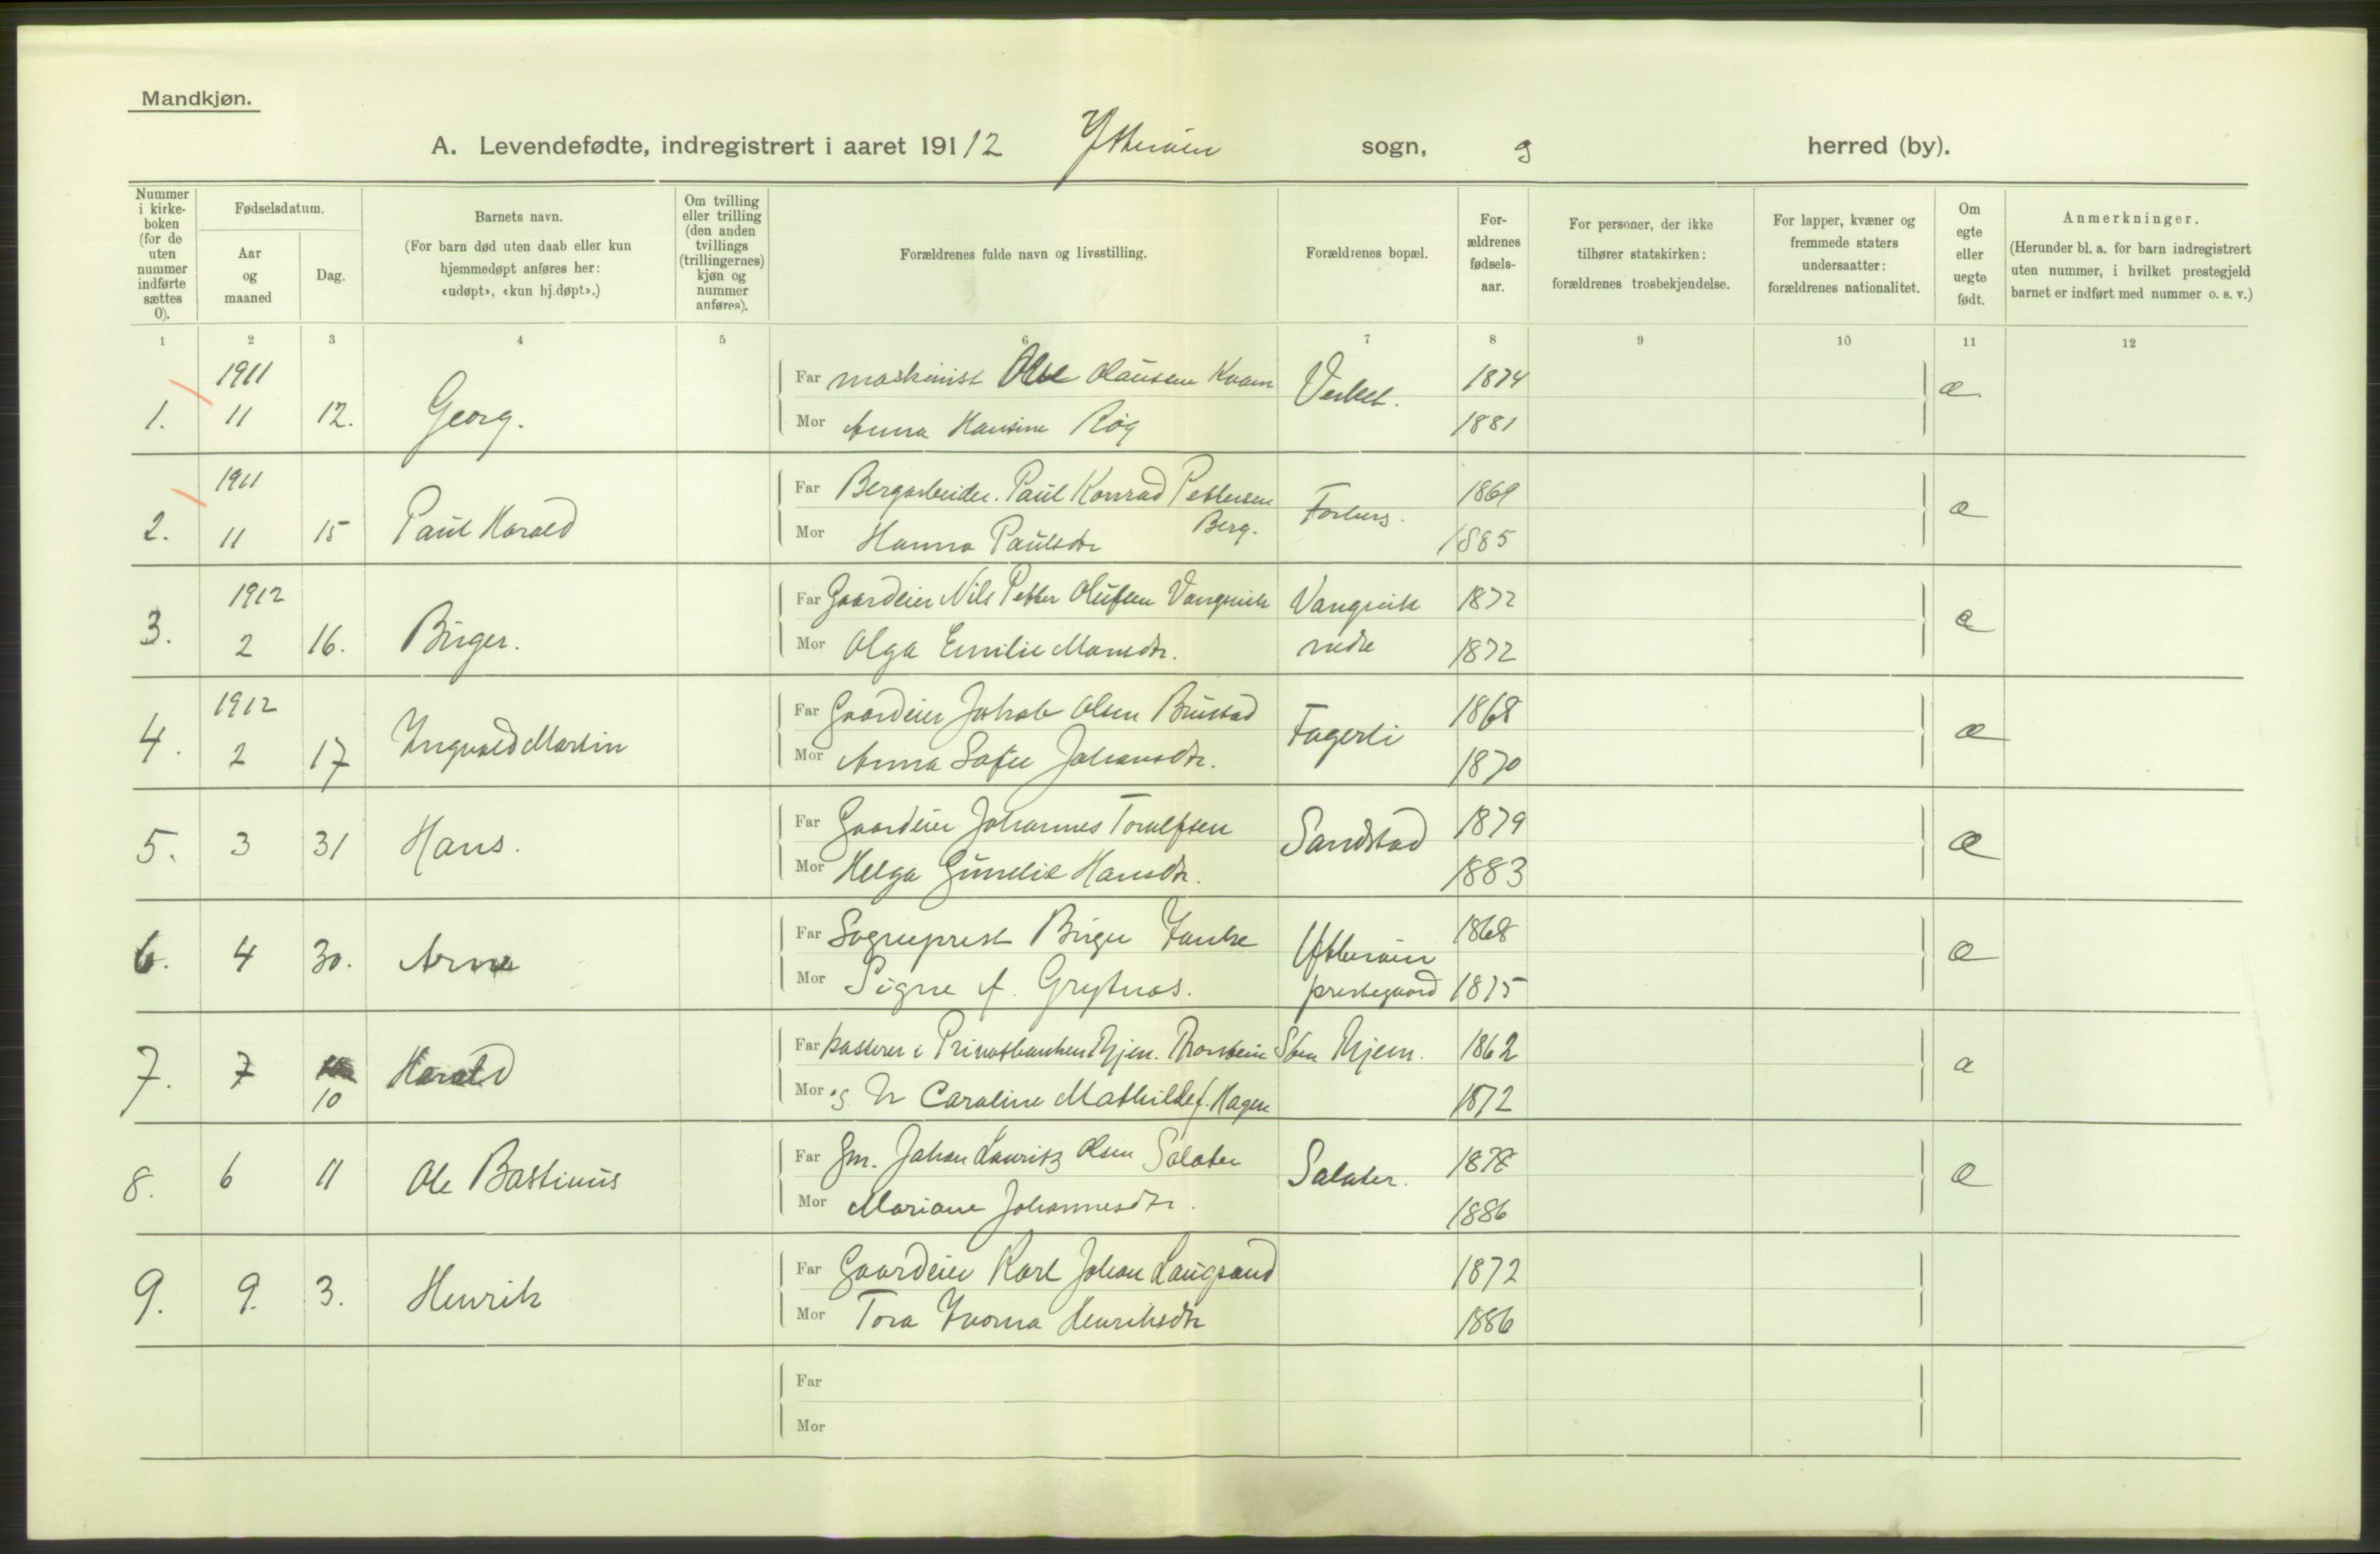 Mandkjøn.
A. Levendefødte, indregistrert i aaret 1912 Ytterøien sogn, herred (by).
Nummer i kirkeboken (for de uten nummer indførte sættes 0).
Fødselsdatum.
Aar og maaned
Dag.
Barnets navn.
(For barn død uten daab eller kun hjemmedøpt anføres her: «udøpt», «kun hj.døpt».)
Om tvilling eller trilling (den anden tvillings (trillingernes) kjøn og nummer anføres).
Forældrenes fulde navn og livsstilling.
Forældrenes bopæl.
Forældrenes fødselsaar.
For personer, der ikke tilhører statskirken: forældrenes trosbekjendelse.
For lapper, kvæner og fremmede staters undersaatter: forældrenes nationalitet.
Om egte eller uegte født.
Anmerkninger.
(Herunder bl. a. for barn indregistrert uten nummer, i hvilket prestegjeld barnet er indført med nummer o. s. v.)
1 2 3 4 5 6 7 8 9 10 11 12
1911
Far maskinist Ole Olausen Kvam Verket. 1874
1. 11 12. Georg.
Mor Anna Hansine Røg 1881
1911
Far Bergarbeider. Paul Konrad Pettersen Forberg. 1869
2. 11 15 Paul Harald
Berg.
Mor Hanna Paulsdtr 1885
1912
Far Gaardeier Nils Petter Olufsen Vangvik Vangvik 1872
3. 2 16. Birger.
Mor Olga Emilie Mansdtr. nedre 1872
1912
Far Gaardeier Jakob Olsen Brustad Fagerli 1868
4. 2 17 Ingvald Martin
Mor Anna Sofie Johansdtr. 1870
Far Gaardeier Johannes Toralfsen Sandstad 1879
5. 3 31 Hans.
Mor Helga Gunelie Hansdtr. 1883
Far Sogneprest Birger Janke Ytterøien 1868
6. 4 30. Arne
Mor Signe f. Grytnæs. prestegaard 1875
Far kasserer i Privatbanken Thjem Sten Thjem. 1862
7. 7 10 Harald
Mor og H. Caroline Mathilde f. Hagen 1872
Far Gm. Johan Lauritz Olsen Salater Salater. 1878
8. 6 11 Ole Bastinus
Mor Mariane Johannesdtr. 1886
Far Gaardeier Karl Johan Laugsand 1872
9. 9. 3. Henrik
Mor Tora Ivorna Henriksdtr 1886
Far
Mor